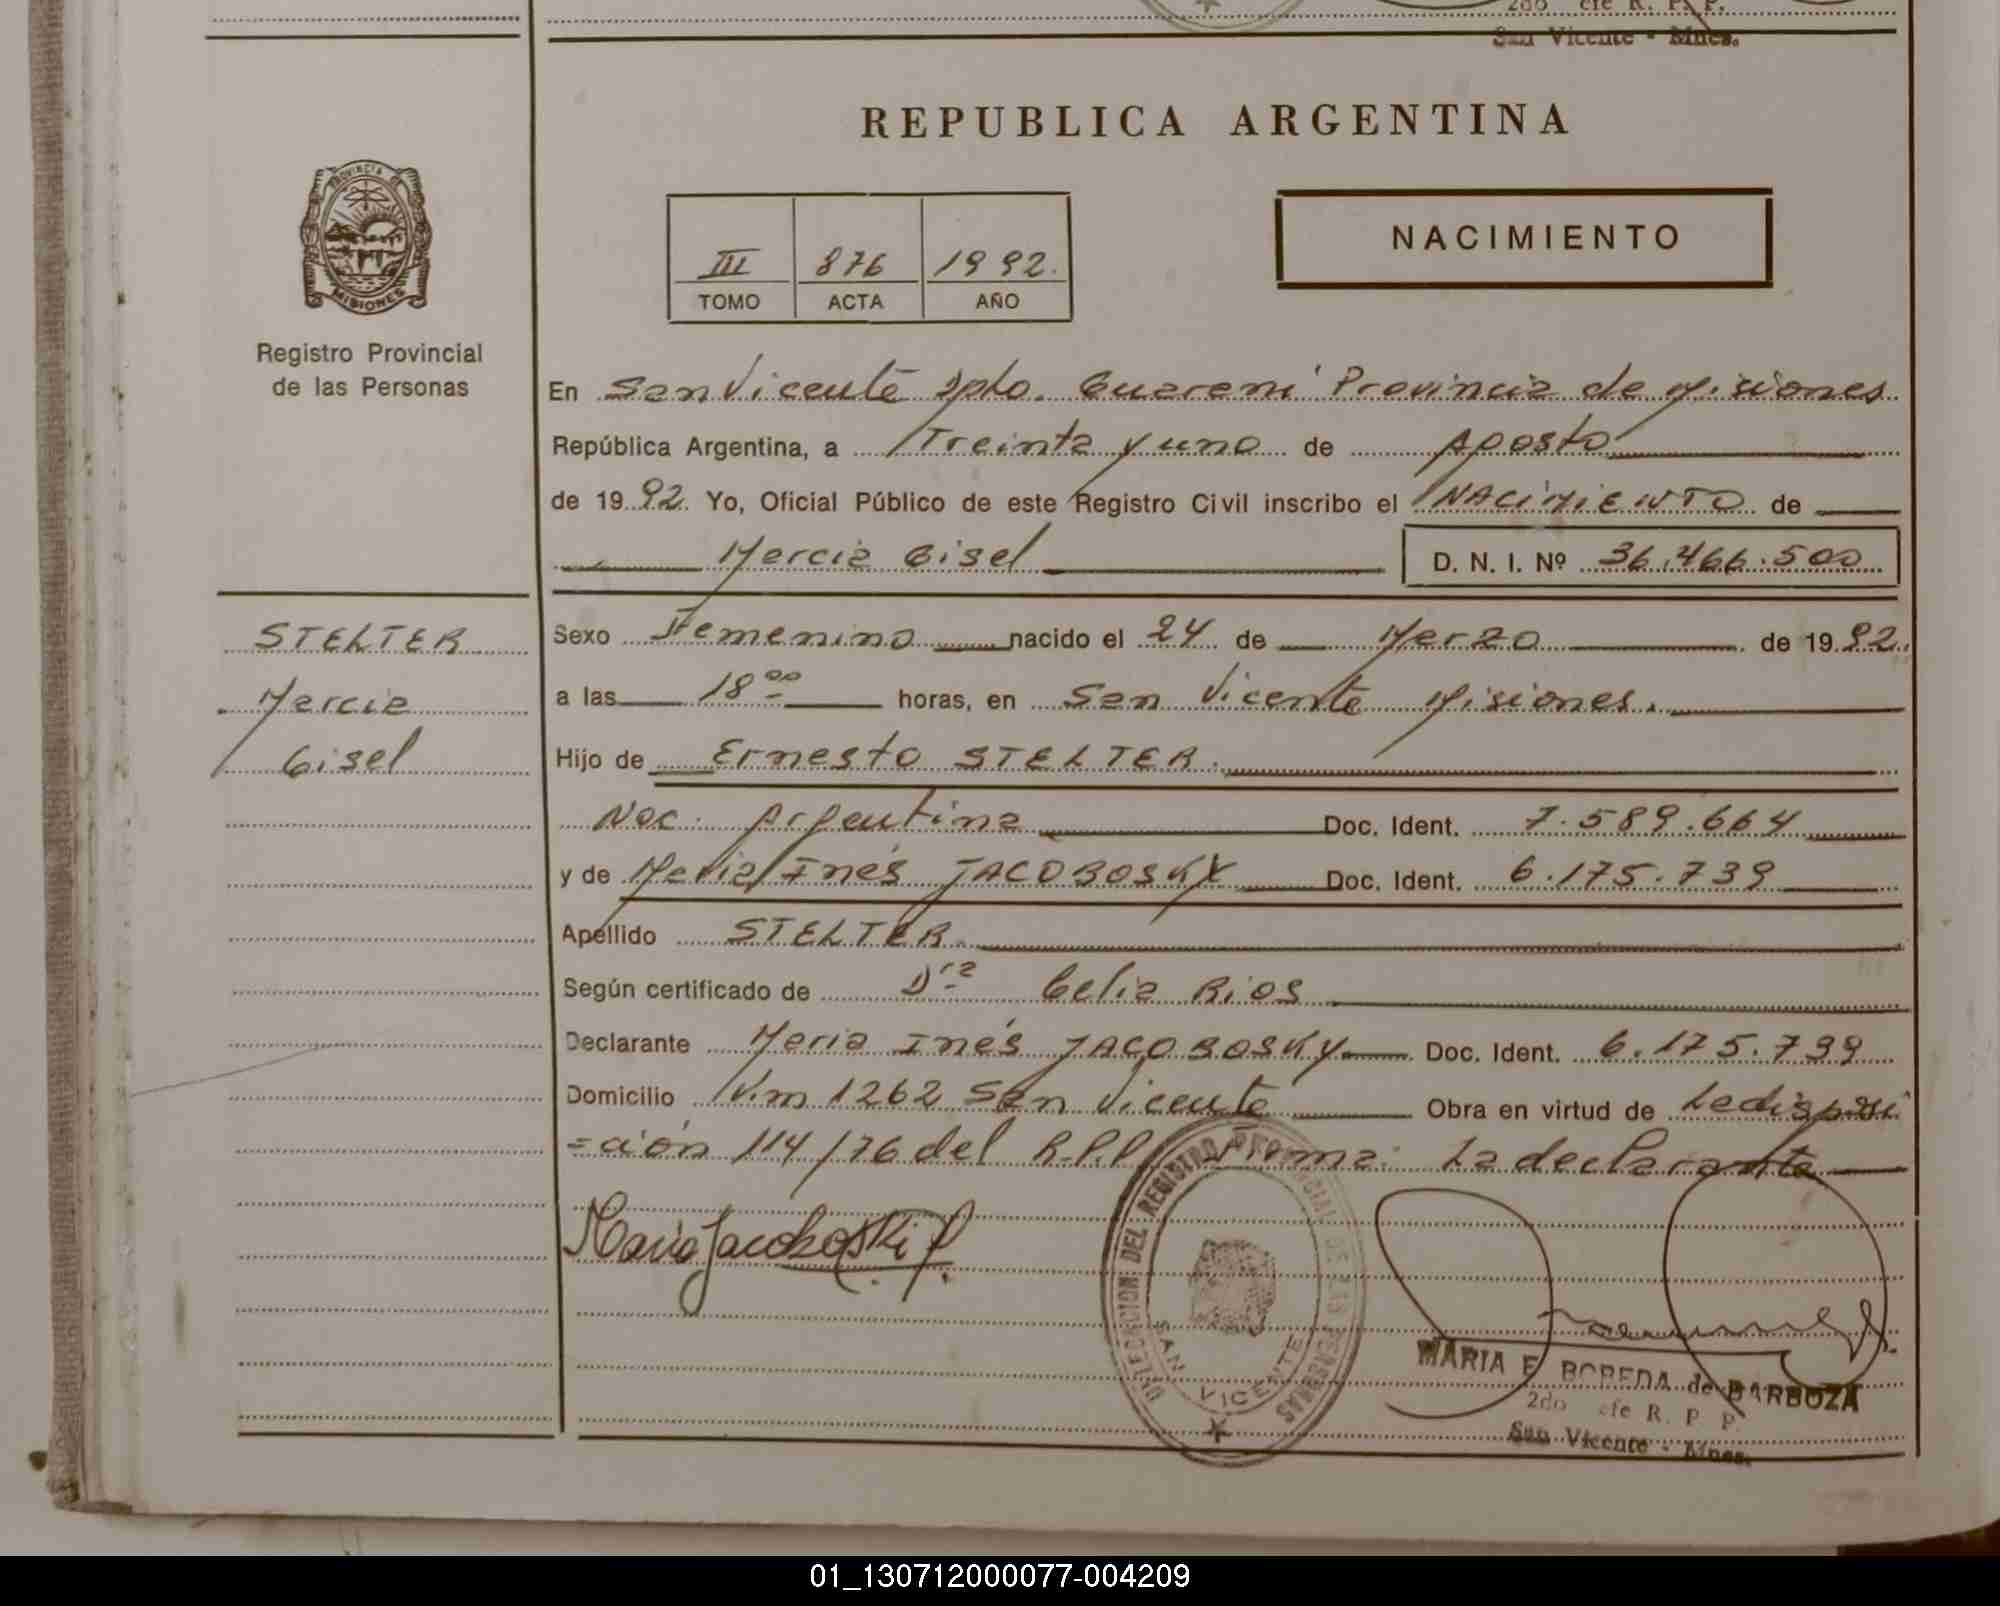 2do efe R. P. P.
San Vicente - Mnes.
REPUBLICA ARGENTINA
PROVINCIA DE
MISIONES
Registro Provincial
de las Personas
III 876 1992.
TOMO ACTA AÑO
NACIMIENTO
En San Vicente Dpto. Guarani Provincia de Misiones
República Argentina, a Treinta y uno de Agosto
de 1992. Yo, Oficial Público de este Registro Civil inscribo el NACIMIENTO de
Marcia Gisel D. N. I. Nº 36.466.500
STELTER
Marcia
Gisel
Sexo Femenino nacido el 24 de Marzo de 1992.
a las 18 00 horas, en San Vicente Misiones.
Hijo de Ernesto STELTER.
Nac. Argentina Doc. Ident. 7.589.664
y de Maria Inés JACOBOSKY Doc. Ident. 6.175.739
Apellido STELTER.
Según certificado de Dra Celia Rios
Declarante Maria Inés JACOBOSKY Doc. Ident. 6.175.739
Domicilio Km 1262 San Vicente Obra en virtud de La disposi
=ción 114/76 del R.P.P. Firma: La declarante
Maria Jacoboski
DELEGACION DEL REGISTRO PROVINCIAL DE LAS PERSONAS
SAN VICENTE
MARIA E BOREDA de BARBOZA
2do efe R. P. P.
San Vicente - Mnes.
01_130712000077-004209